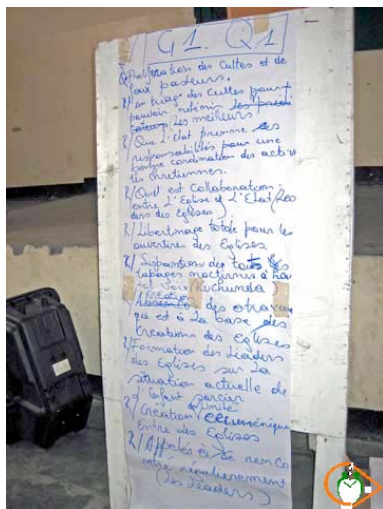 G1. Q1
Q/ Proliferation des Cultes et de
faux pasteurs.
R/ un triage des cultes pour
pouvoir retenir
les meilleurs
R/ Que L'état prenne les
responsabilités pour une
bonne cordination des activi
tés chretiennes.
R/ Quel est collaboration
entre L'Eglise et L'Etat (Lea
ders des eglises)
R/ Libertinage totale pour les
ouvertires des Eglises
des
tapages nocturnes
kuchunda)
Création des
qui est à la base des
Creations des Eglises
R/ Formation des Leaders
des Eglises sur La
situation actuelle de
l'enfant sorcier
R/ Création unité
Œcuménique
Entre des Eglises
R/ Appeles à se renco
ntré régulièrement
(Les Leaders)